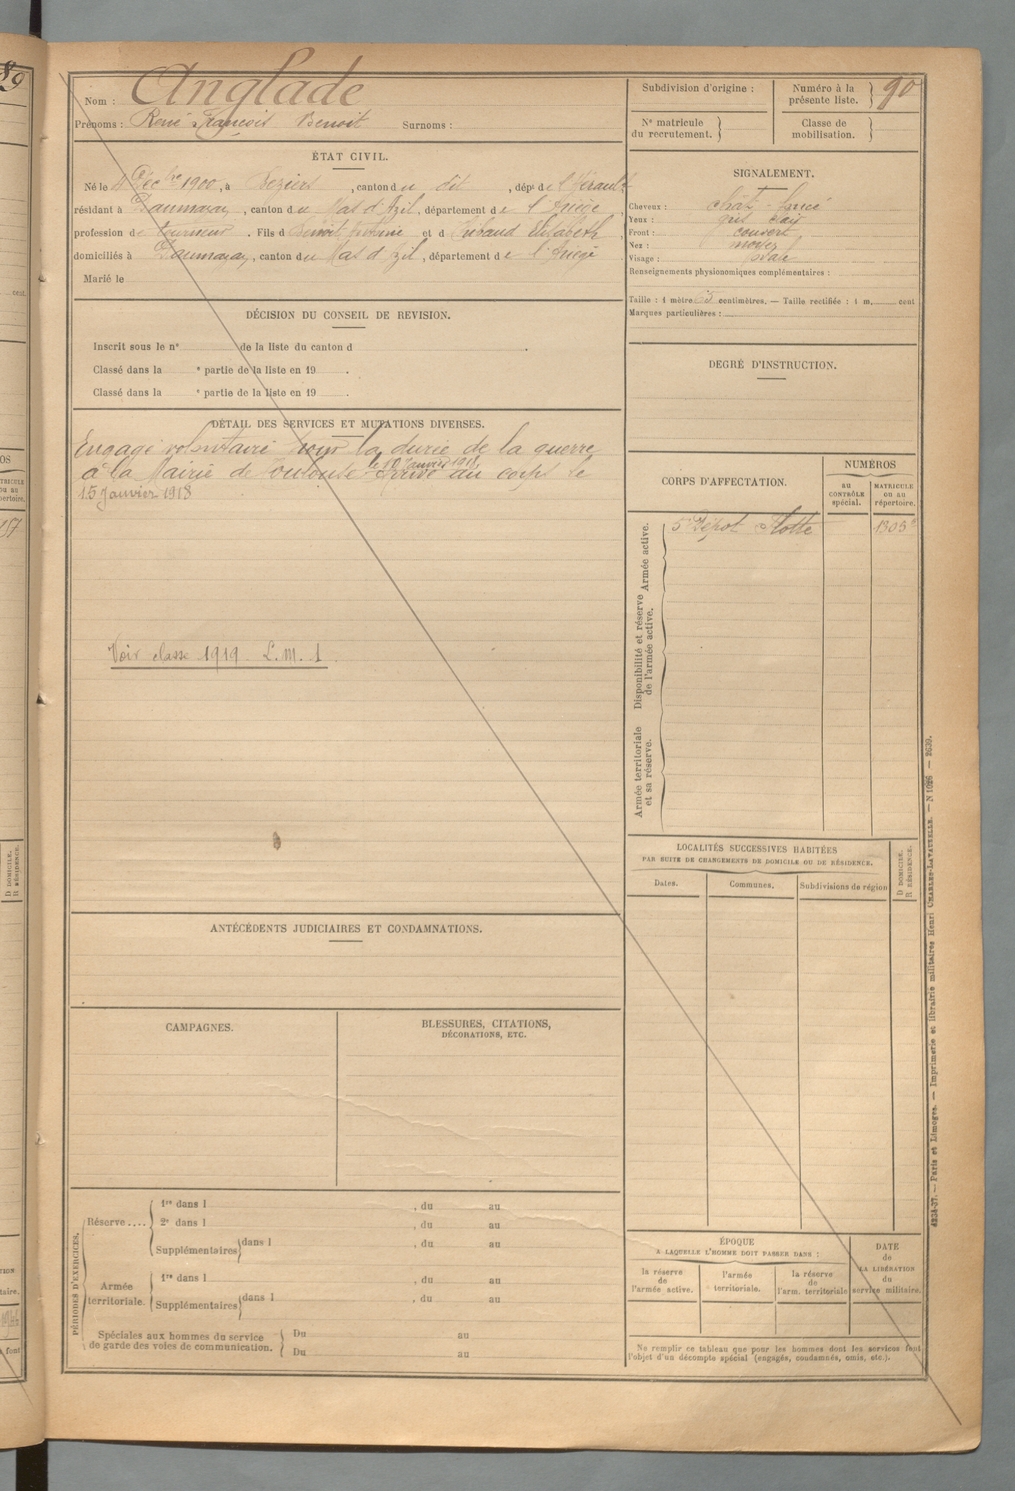 89
Nom : Anglade
Prénoms : René François Benoit Surnoms :
Subdivision d'origine :
Numéro à la présente liste. } 90
N° matricule du recrutement. }
Classe de mobilisation. }
ÉTAT CIVIL.
Né le 4 Déc bre 1900, à Béziers, canton du dit, dép t de l'Hérault
résidant à Daumazan, canton du Mas d'Azil, département de l'Ariège,
profession de tourneur. Fils d Benoit, Antoine et d Thibaud Elisabeth,
domiciliés à Daumazan, canton du Mas d'Azil, département de l'Ariège
Marié le
SIGNALEMENT.
Cheveux : chât. foncé
Yeux : gris clair
Front : couvert
Nez : moyen
Visage : ovale
Renseignements physionomiques complémentaires :
Taille : 1 mètre centimètres. — Taille rectifiée : 1 m, cent
Marques particulières :
DÉCISION DU CONSEIL DE REVISION.
Inscrit sous le n° de la liste du canton d
Classé dans la e partie de la liste en 19 .
Classé dans la e partie de la liste en 19 .
DEGRÉ D'INSTRUCTION.
DÉTAIL DES SERVICES ET MUTATIONS DIVERSES.
Engagé volontaire pour la durée de la guerre
à la Mairie de Toulouse le 10 Janvier 1918 Arrivé au corps le
15 Janvier 1918
Voir classe 1919 L.M. 1
CORPS D'AFFECTATION.
NUMÉROS
AU CONTRÔLE spécial.
MATRICULE ou au répertoire.
5e Dépôt Flotte
Armée active.
Disponibilité et réserve de l'armée active.
Armée territoriale et sa réserve.
LOCALITÉS SUCCESSIVES HABITÉES
PAR SUITE DE CHANGEMENTS DE DOMICILE OU DE RÉSIDENCE.
Dates.
Communes.
Subdivisions de région
D DOMICILE.
R RÉSIDENCE.
ANTÉCÉDENTS JUDICIAIRES ET CONDAMNATIONS.
CAMPAGNES.
BLESSURES, CITATIONS,
DÉCORATIONS, ETC.
PÉRIODES D'EXERCICES.
Réserve....
1re dans l , du au
2e dans l , du au
Supplémentaires dans l , du au
Armée territoriale.
1re dans l , du au
Supplémentaires dans l , du au
Spéciales aux hommes du service
de garde des voies de communication.
Du au
Du au
ÉPOQUE
A LAQUELLE L'HOMME DOIT PASSER DANS :
la réserve de l'armée active.
l'armée territoriale.
la réserve de l'arm. territoriale
DATE de LA LIBÉRATION du service militaire.
Ne remplir ce tableau que pour les hommes dont les services font
l'objet d'un décompte spécial (engagés, condamnés, omis, etc.).
4234-37. — Paris et Limoges. — Imprimerie et librairie militaires Henri CHARLES-LAVAUZELLE. — N 1026 — 2639.